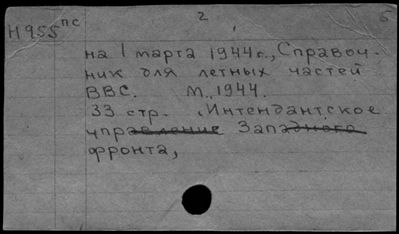 2 5
Н955пс
на 1 марта 1944г., Справоч-
ник для летных частей
ВВС. М., 1944.
33 стр. (Интендантское
управление Западного
фронта,